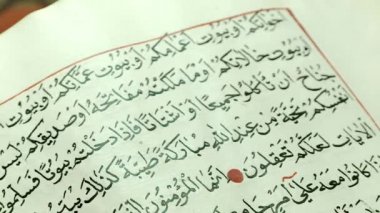 اَخَوَاتِكُمْ اَوْ بُيُوتِ اَعْمَامِكُمْ اَوْ بُيُوتِ عَمَّاتِكُمْ اَوْ بُيُوتِ
اَوْ بُيُوتِ خَالَاتِكُمْ اَوْ مَا مَلَكْتُمْ مَفَاتِحَهُ اَوْ صَدِيقِكُمْ لَيْسَ
جُنَاحٌ اَنْ تَأْكُلُوا جَمِيعًا اَوْ اَشْتَاتًا فَاِذَا دَخَلْتُمْ بُيُوتًا فَسَلِّمُوا
اَنْفُسِكُمْ تَحِيَّةً مِنْ عِنْدِ اللّٰهِ مُبَارَكَةً طَيِّبَةً كَذٰلِكَ يُبَيِّنُ
الْاٰيَاتِ لَعَلَّكُمْ تَعْقِلُونَ اِنَّمَا الْمُؤْمِنُونَ الَّذِينَ
كَانُوا مَعَهُ عَلٰى اَمْرٍ جَامِعٍ